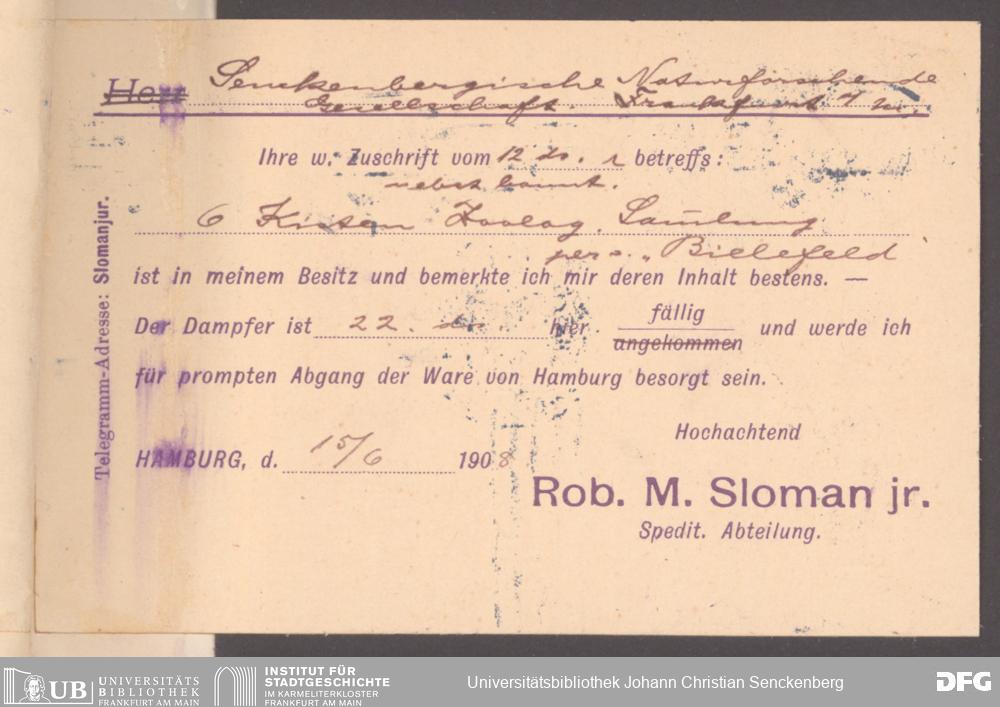 Herr Senckenbergische Naturforschende
Gesellschaft. Frankfurt a/m.
Ihre w. Zuschrift vom 12 ds. betreffs:
nebst
6 Kisten Zoolog. Samlung
per s. „Bielefeld
ist in meinem Besitz und bemerkte ich mir deren Inhalt bestens. —
Der Dampfer ist 22. ds. hier fällig
angekommen und werde ich
für prompten Abgang der Ware von Hamburg besorgt sein.
Hochachtend
HAMBURG, d. 15/6 1908
Rob. M. Sloman jr.
Spedit. Abteilung.
Telegramm-Adresse: Slomanjur.
UB UNIVERSITÄTS
BIBLIOTHEK
FRANKFURT AM MAIN
INSTITUT FÜR
STADTGESCHICHTE
IM KARMELITERKLOSTER
FRANKFURT AM MAIN
Universitätsbibliothek Johann Christian Senckenberg
DFG